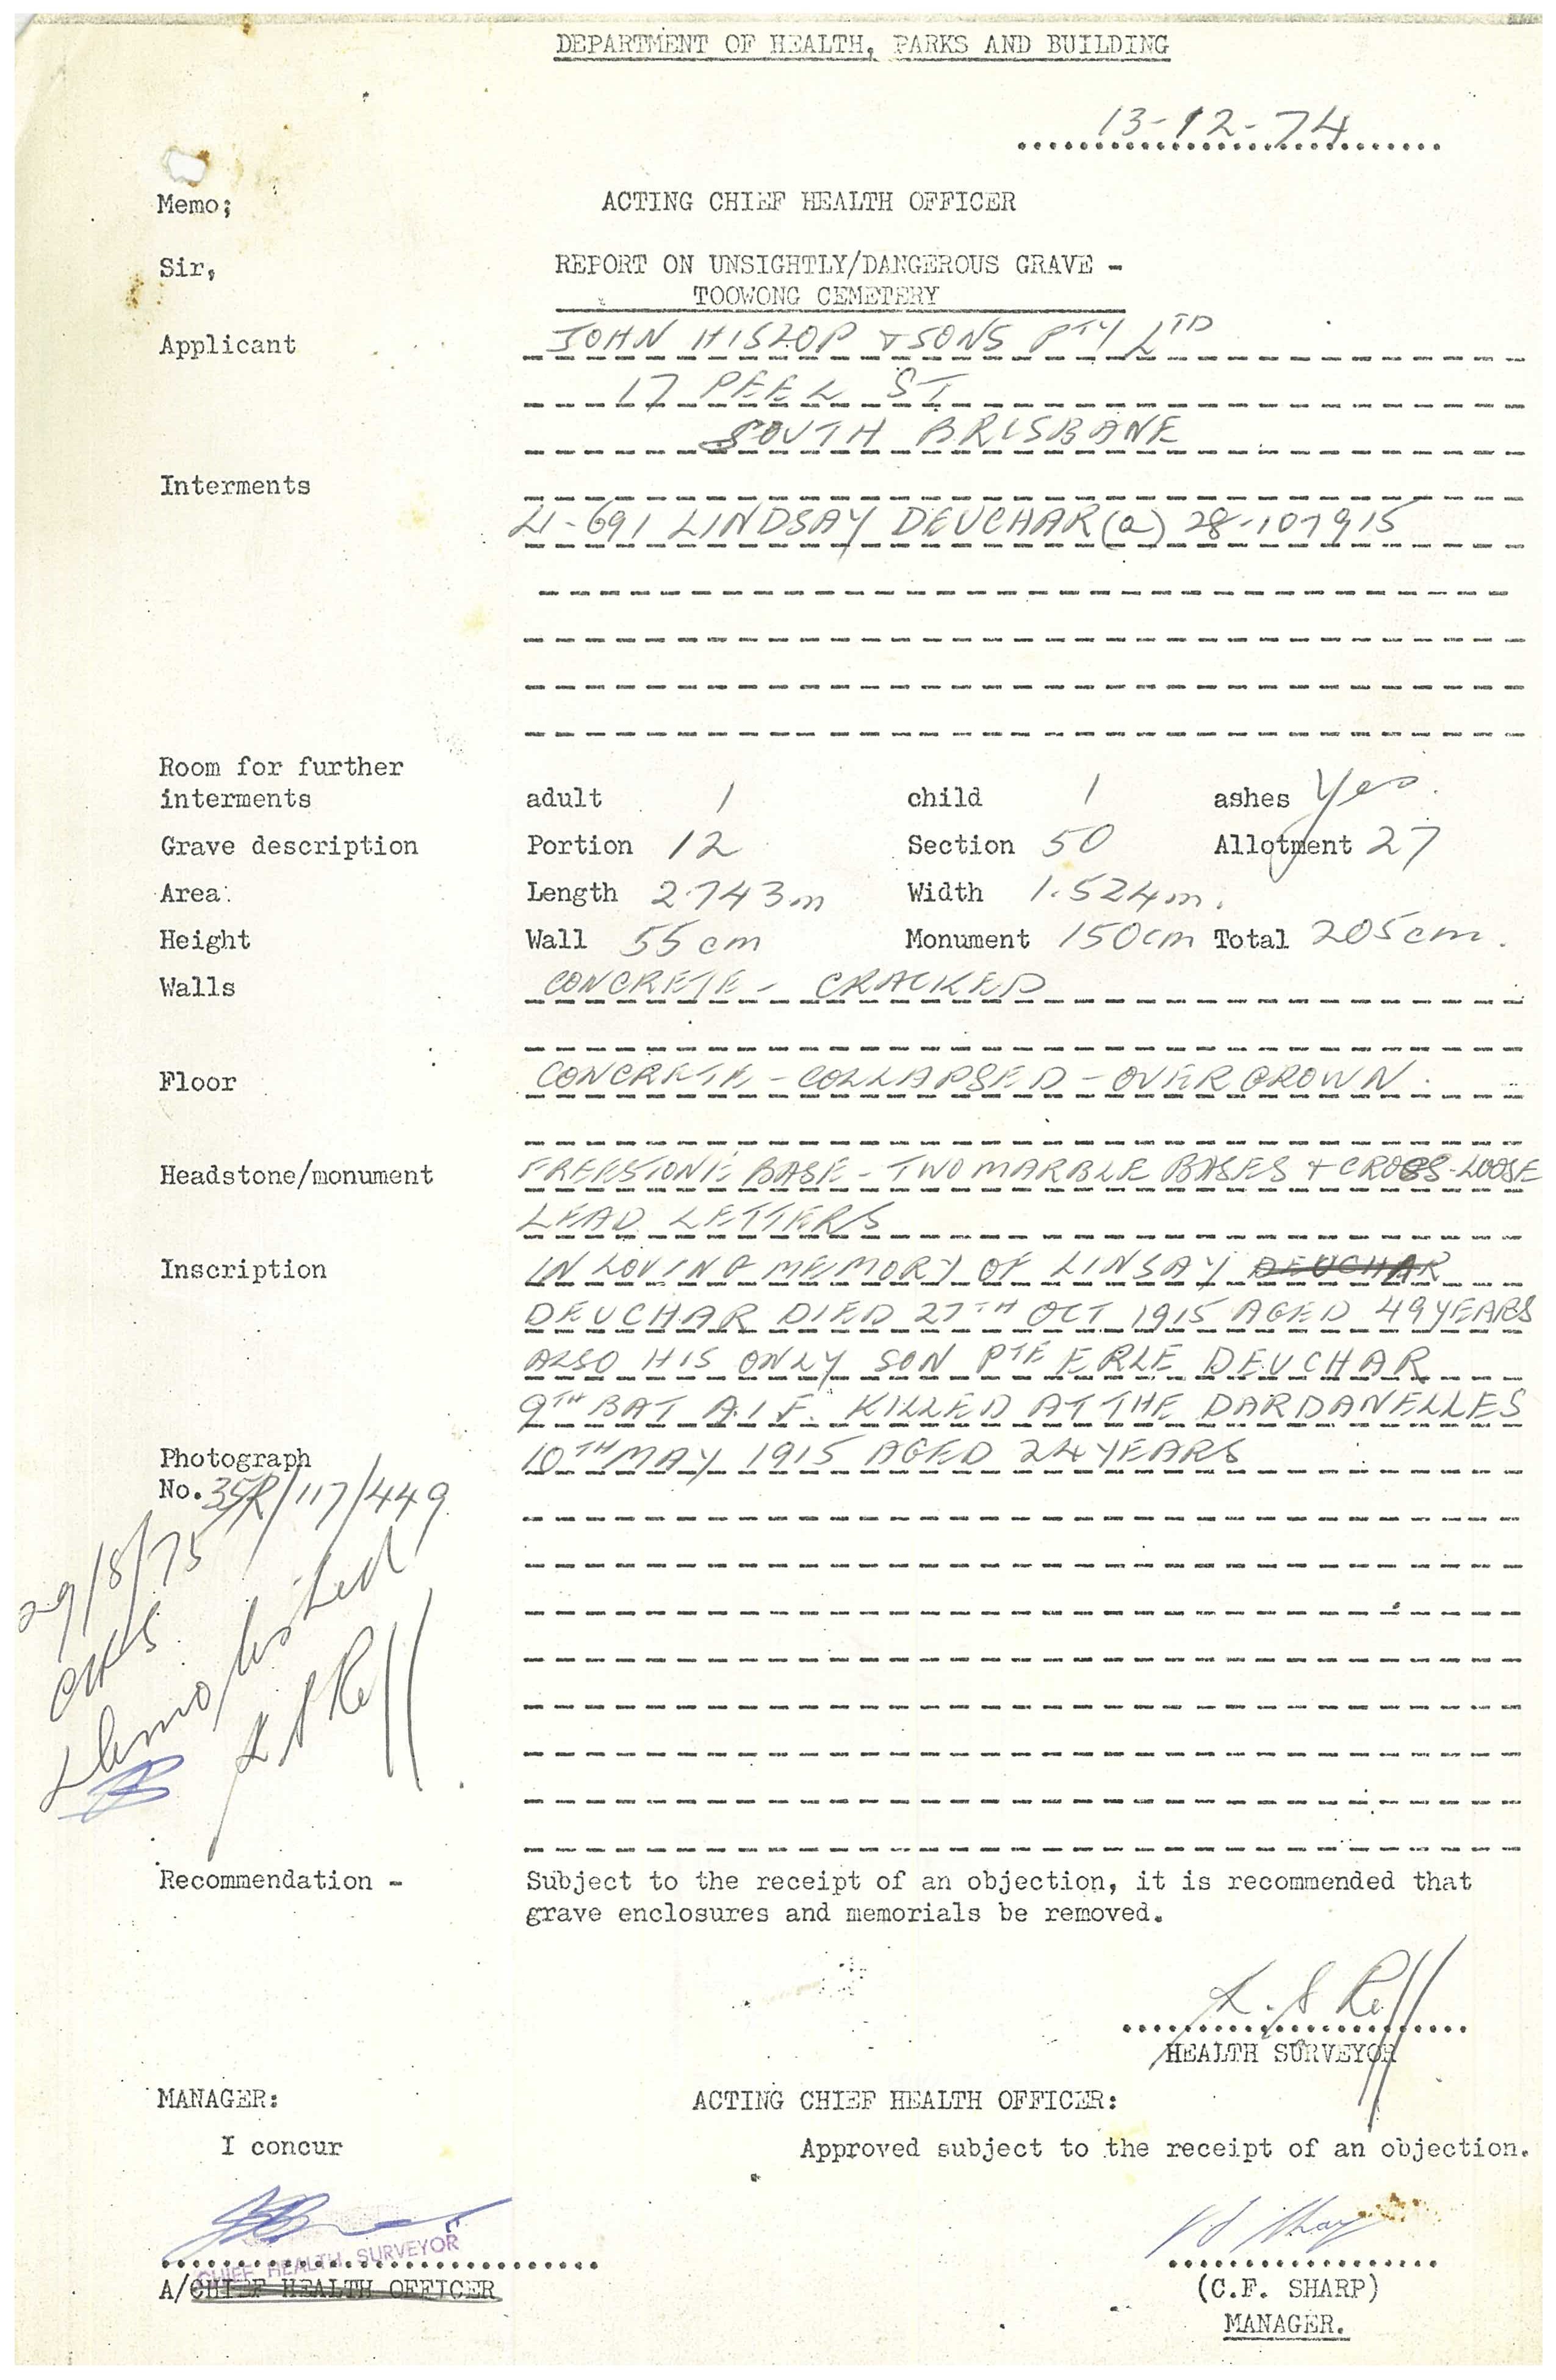 DEPARTMENT OF HEALTH, PARKS AND BUILDING
13-12-74
Memo; ACTING CHIEF HEALTH OFFICER
Sir, REPORT ON UNSIGHTLY/DANGEROUS GRAVE -
TOOWONG CEMETERY
Applicant JOHN HISLOP & SONS PTY LTD
17 PEEL ST
SOUTH BRISBANE
Interments
LINDSAY DEUCHAR (a) 28-10-1915
Room for further
interments adult 1 child 1 ashes Yes.
Grave description Portion 12 Section 50 Allotment 27
Area: Length 2.743m Width 1.524m.
Height Wall 55 cm Monument 150cm Total 205cm.
Walls CONCRETE - CRACKED
Floor CONCRETE - COLLAPSED - OVERGROWN.
Headstone/monument FREESTONE BASE - TWO MARBLE BASES & CROSS - LOOSE
LEAD LETTERS
Inscription IN LOVING MEMORY OF LINSAY DEUCHAR
DEUCHAR DIED 27TH OCT 1915 AGED 49 YEARS
ALSO HIS ONLY SON PTE ERLE DEUCHAR
9TH BAT A.I.F. KILLED AT THE DARDANELLES
Photograph 10TH MAY 1915 AGED 24 YEARS
No. 35R/117/449
29/8/75
CHS
Demolished
Recommendation - Subject to the receipt of an objection, it is recommended that
grave enclosures and memorials be removed.
HEALTH SURVEYOR
MANAGER: ACTING CHIEF HEALTH OFFICER:
I concur Approved subject to the receipt of an objection.
CHIEF HEALTH SURVEYOR
A/CHIEF HEALTH OFFICER (C.F. SHARP)
MANAGER.